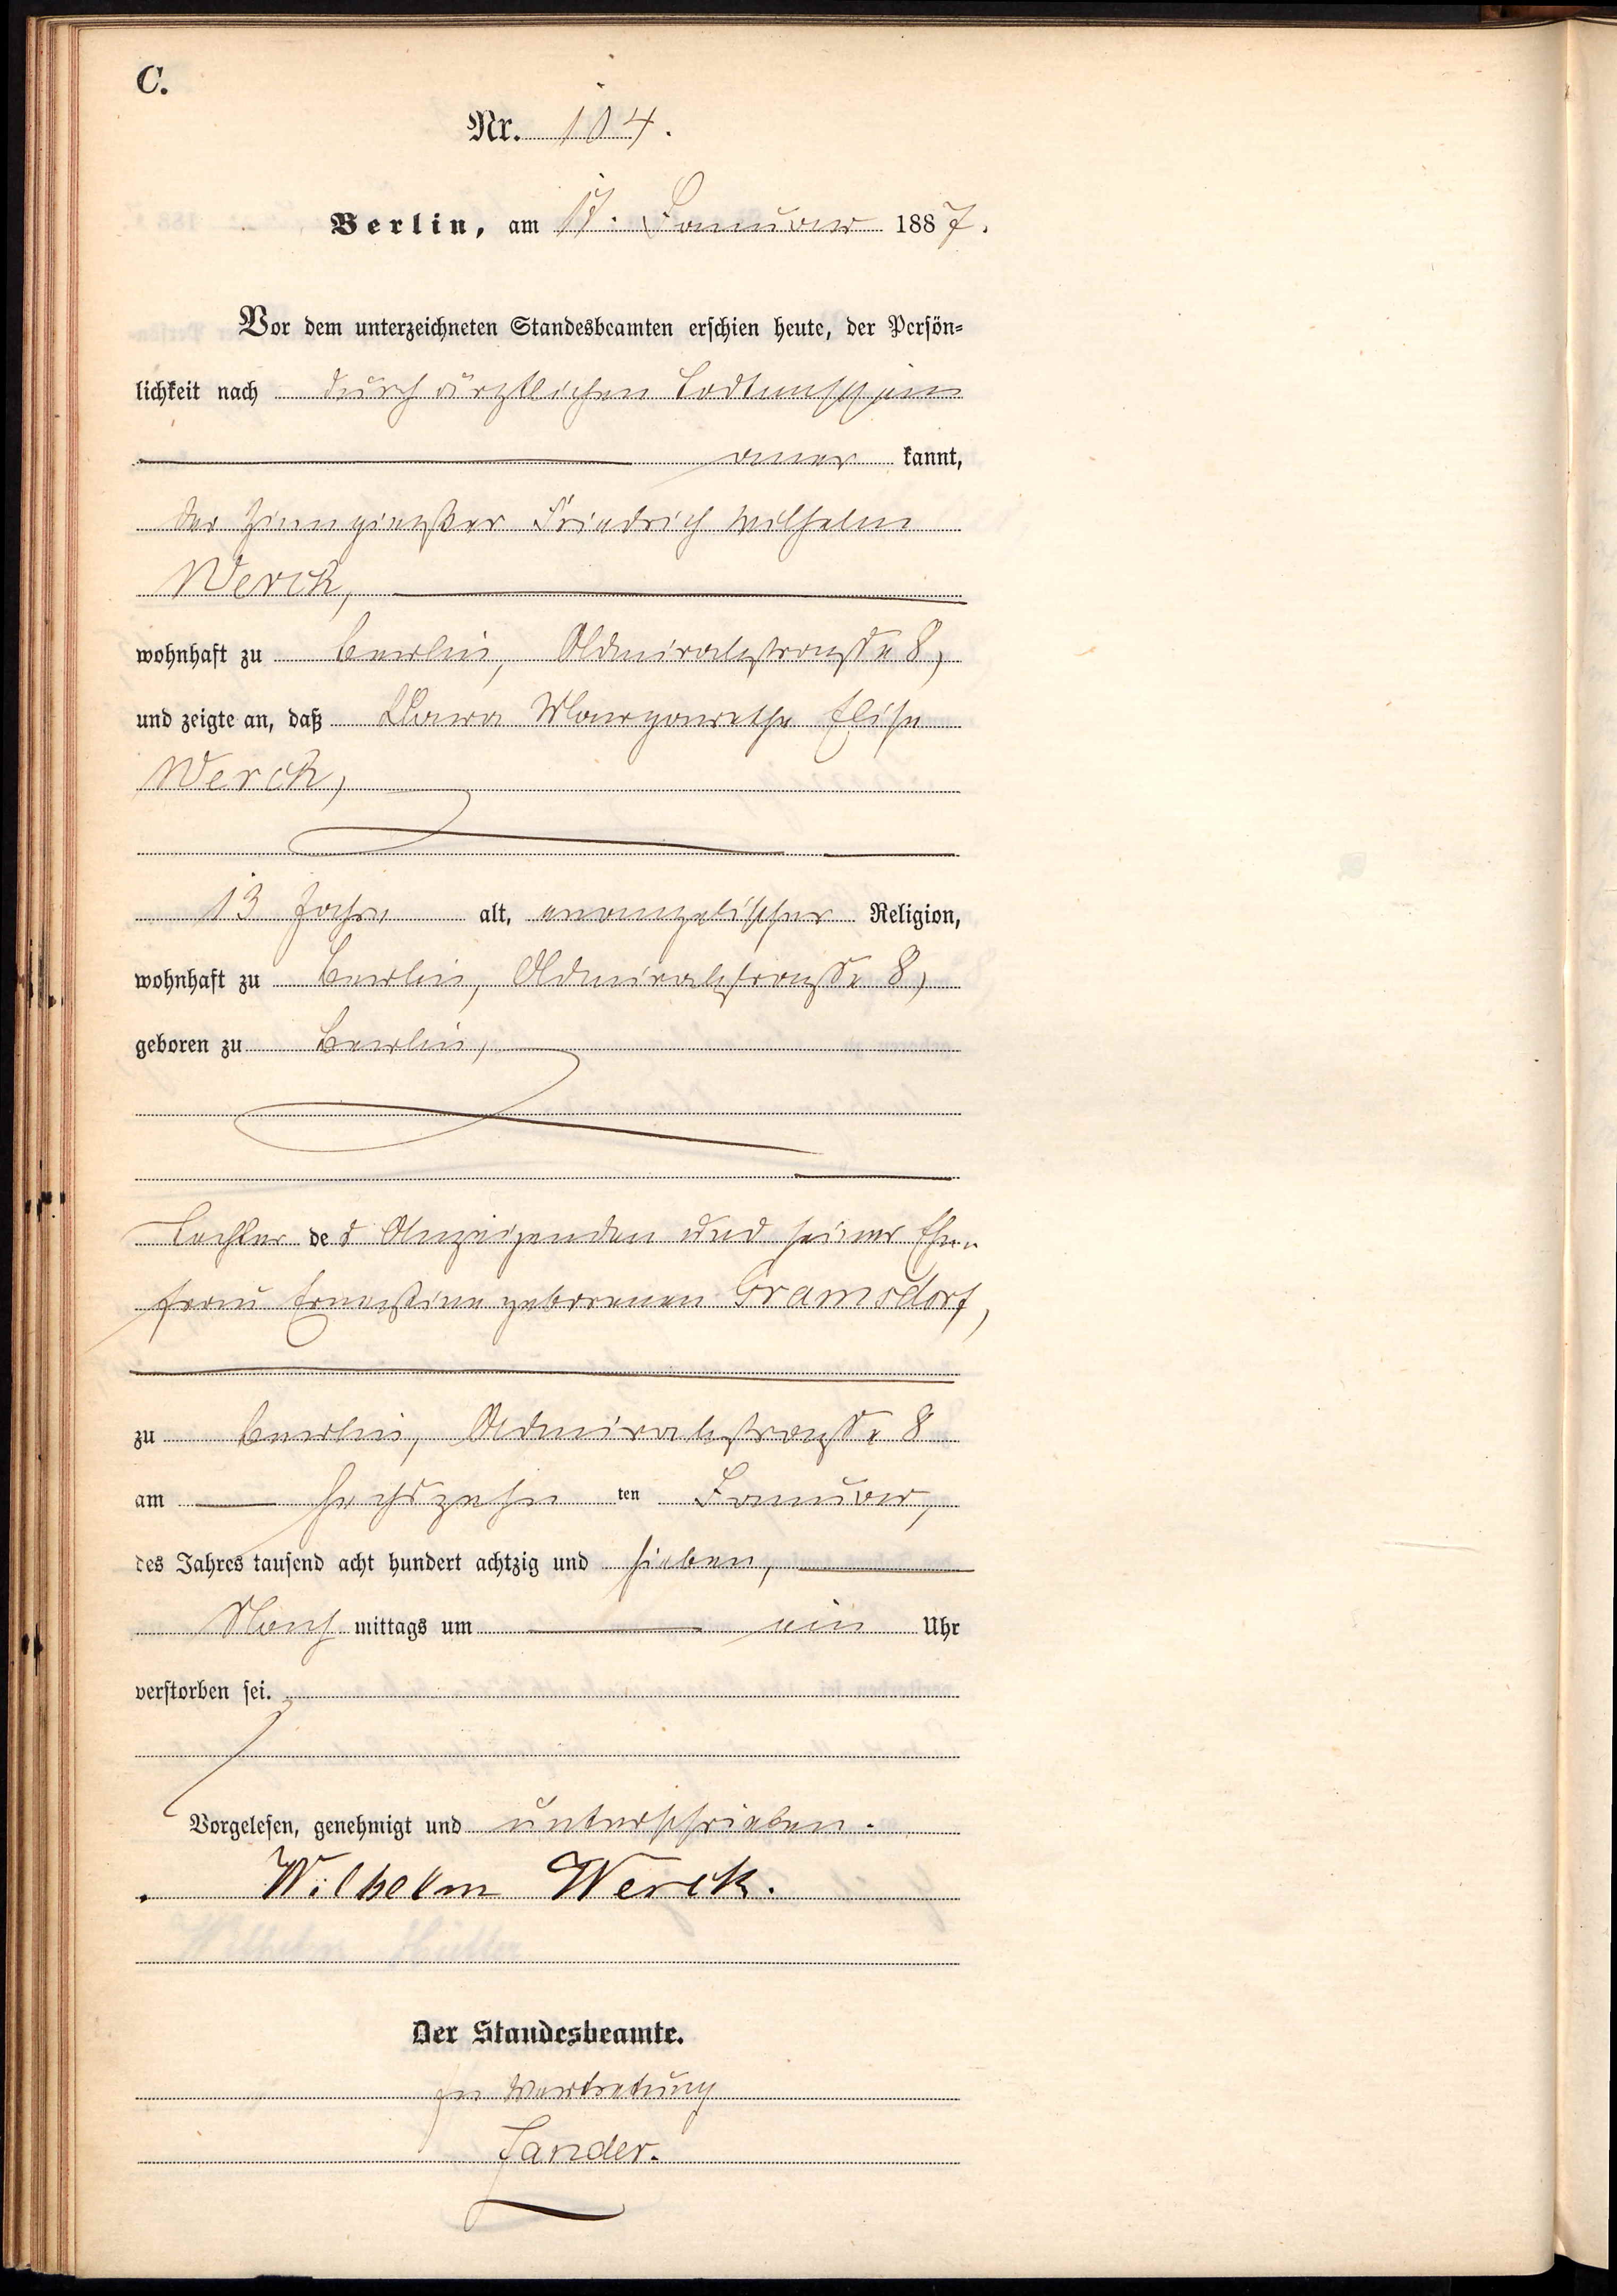 C.
Nr. 104.
Berlin, am 17. Januar 1887.
Vor dem unterzeichneten Standesbeamten erschien heute, der Persön=
lichkeit nach durch ärztlichen Todtenschein
aner kannt,
der Zinngießer Friedrich Wilhelm
Werck,
wohnhaft zu Berlin, Admiralstraße 8,
und zeigte an, daß Clara Margarethe Elise
Werck,
13 Jahre alt, evangelischer Religion,
wohnhaft zu Berlin, Admiralstraße 8,
geboren zu Berlin,
Tochter des Anzeigenden und seiner Ehe=
frau Ernestine geborenen Gramsdorf,
zu Berlin, Admiralstraße 8
am sechszehn ten Januar,
des Jahres tausend acht hundert achtzig und sieben,
Nach mittags um ein Uhr
verstorben sei.
Vorgelesen, genehmigt und unterschrieben.
Wilhelm Werck.
Der Standesbeamte.
In Vertretung
Jander.